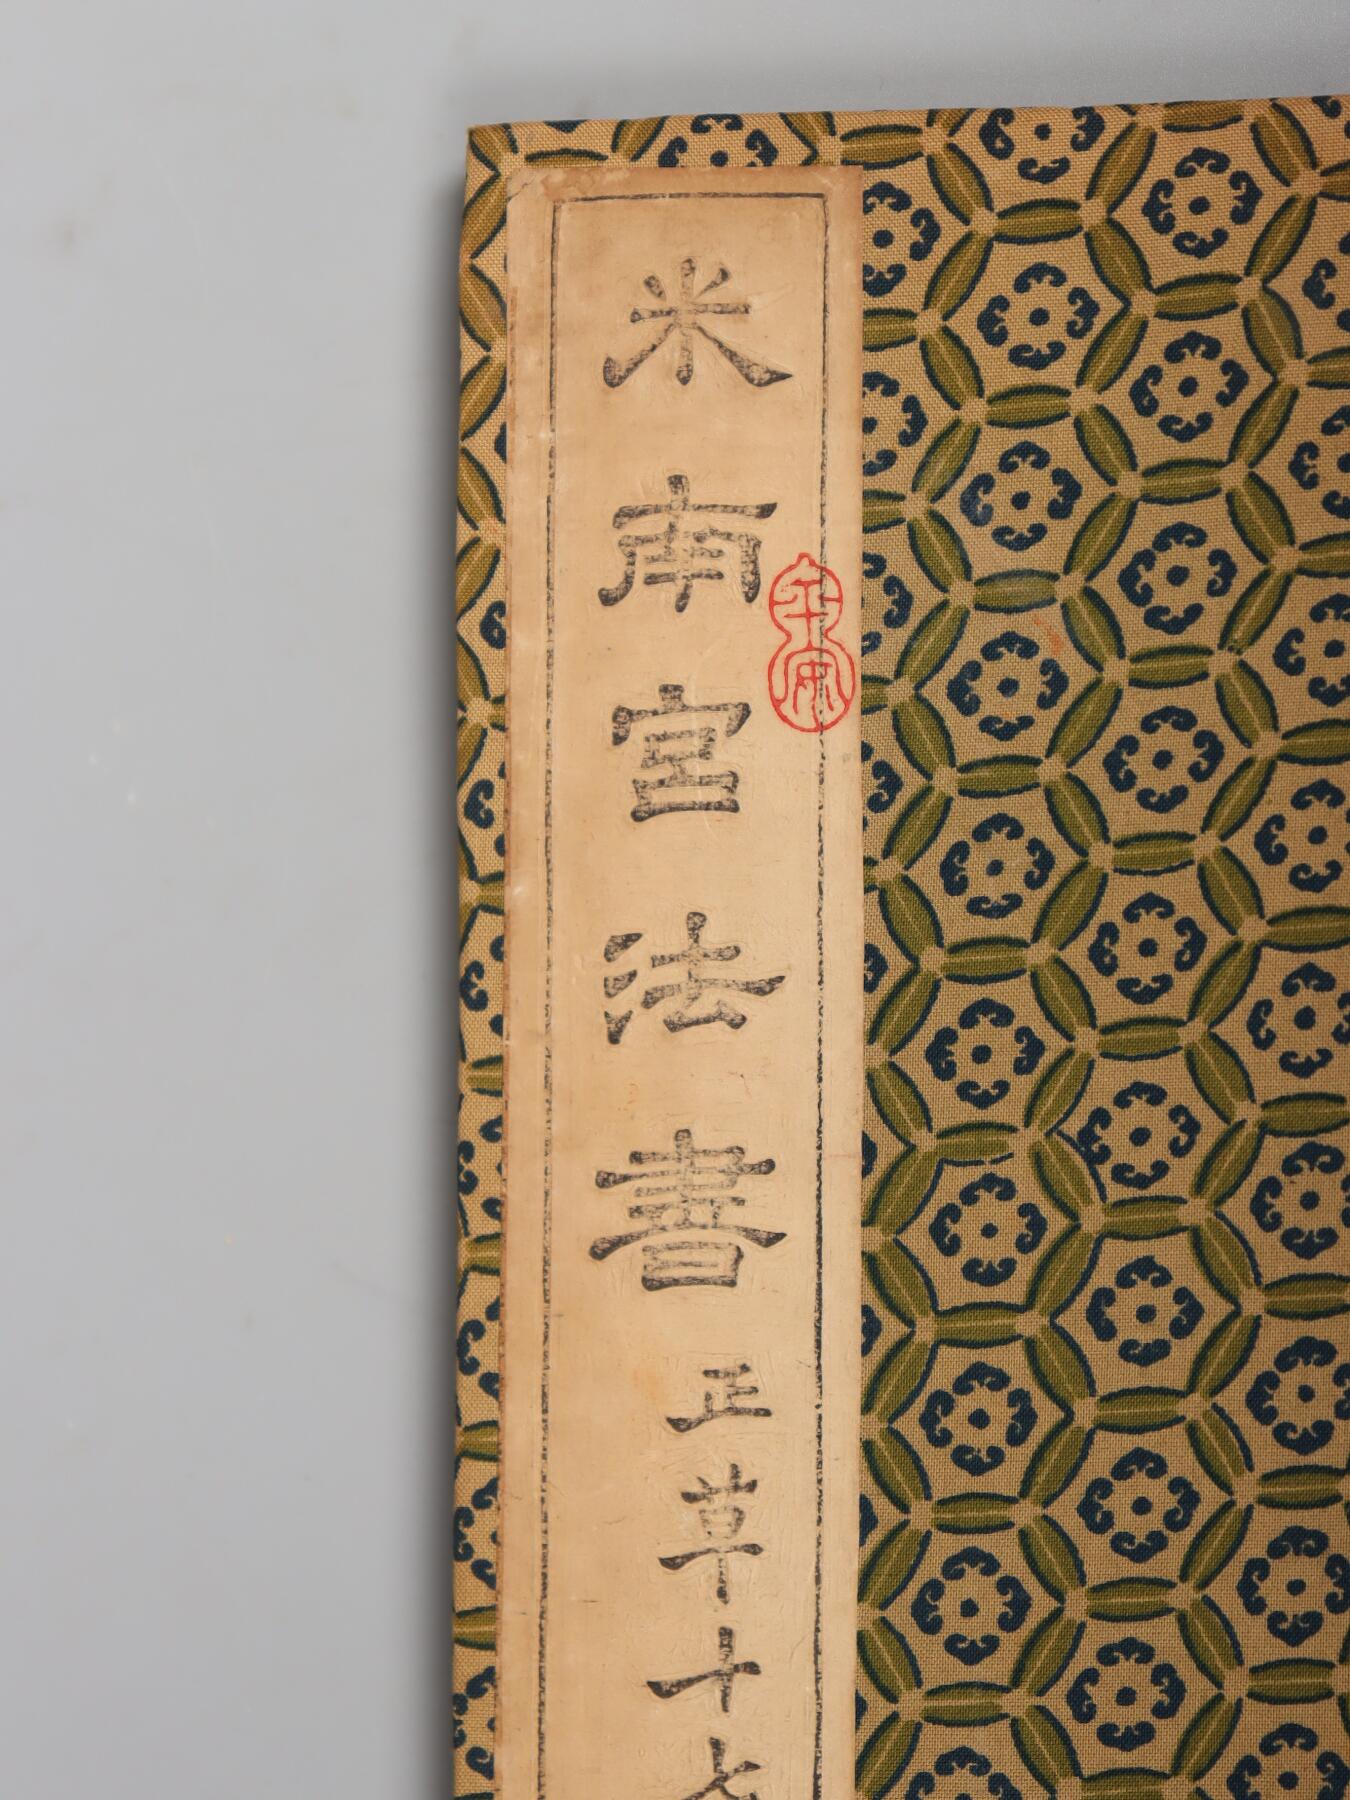 米南宮法書
正草十